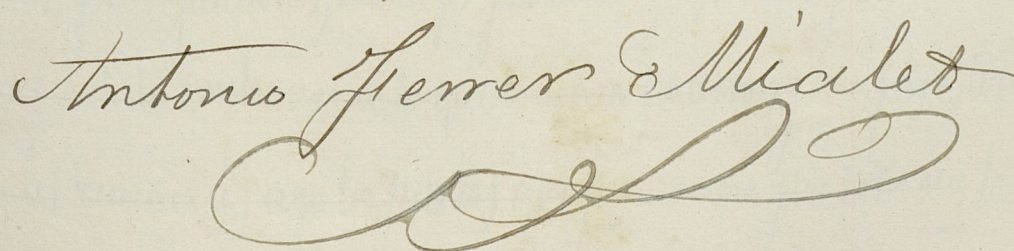 Antonio Ferrer Mialet